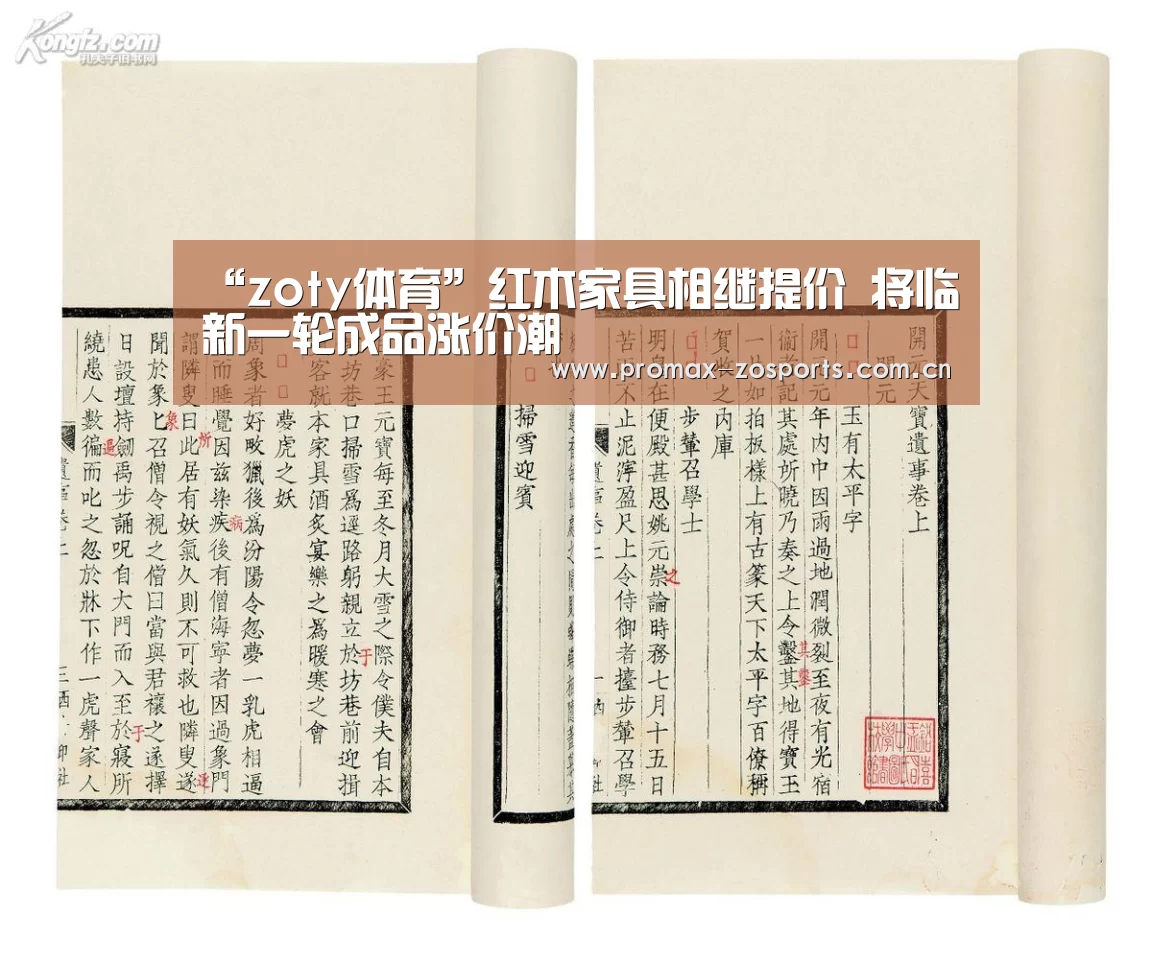 Kongfz.com
孔夫子旧书网
“zoty体育”红木家具相继提价 将临
新一轮成品涨价潮
www.promax-zosports.com.cn
開元天寶遺事卷上
開元
玉有太平字
開元元年內中因雨過地潤微裂至夜有光宿
衞者記其處所曉乃奏之上令鑿其地得寶玉
一片如拍板樣上有古篆天下太平字百僚稱
賀收之內庫
步輦召學士
明皇在便殿甚思姚元崇論時務七月十五日
苦雨不止泥濘盈尺上令侍御者擡步輦召學
之
其鑿
遺事卷上
一
掃雪迎賓
豪王元寶每至冬月大雪之際令僕夫自本
坊巷口掃雪爲逕路躬親立於坊巷前迎揖
客就本家具酒炙宴樂之爲暖寒之會
夢虎之妖
周象者好畋獵後爲汾陽令忽夢一乳虎相逼
而睡覺因茲染疾後有僧海寧者因過象門
謂隣叟曰此居有妖氣久則不可救也隣叟遂
聞於象匕召僧令視之僧曰當與君禳之遂擇
日設壇持劒禹步誦呪自大門而入至於寢所
繞患人數徧而叱之忽於牀下作一虎聲家人
于
病
所
象
于
逼
遺事卷上
三
印社